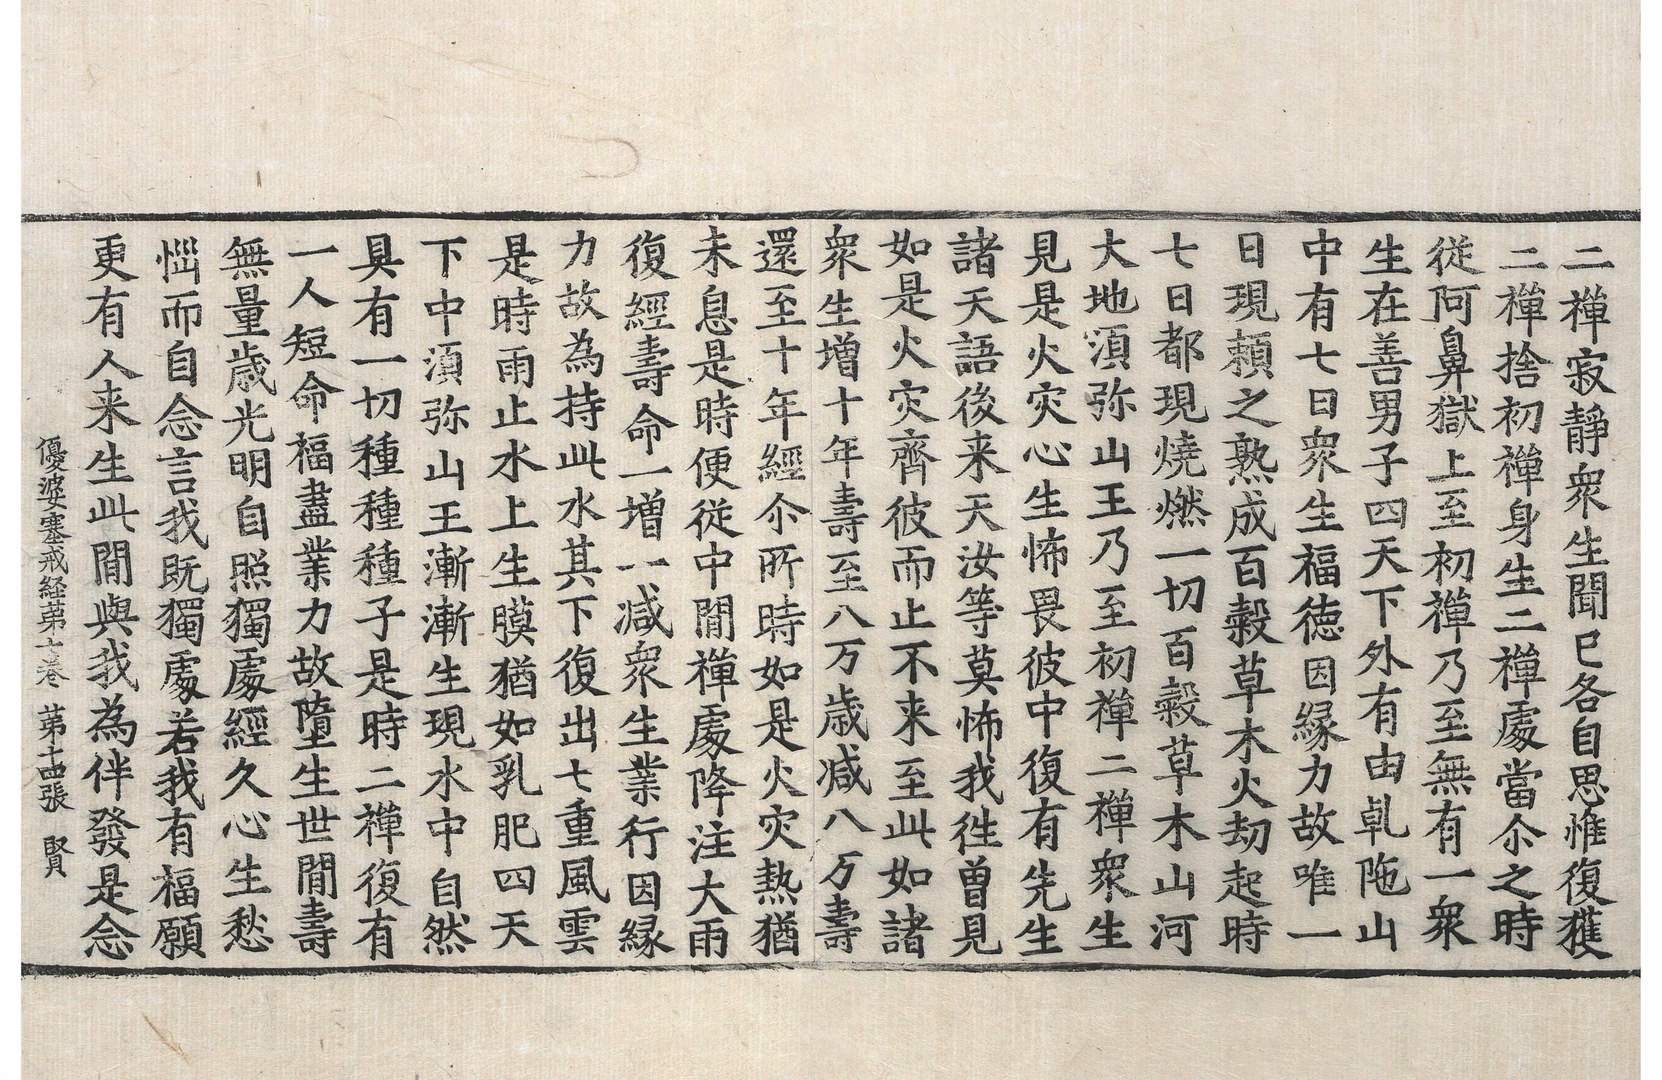 二禪寂静衆生聞已各自思惟復獲
二禪捨初禪身生二禪處當尒之時
從阿鼻獄上至初禪乃至無有一衆
生在善男子四天下外有由乹陁山
中有七日衆生福徳因縁力故唯一
日現頼之熟成百穀草木火劫起時
七日都現燒燃一切百穀草木山河
大地湏弥山王乃至初禪二禪衆生
見是火灾心生怖畏彼中復有先生
諸天語後来天汝等莫怖我徃曽見
如是火灾齊彼而止不来至此如諸
衆生増十年壽至八万歳减八万壽
還至十年經尒所時如是火灾熱猶
未息是時便從中間禪處降注大雨
復經壽命一増一减衆生業行因縁
力故為持此水其下復出七重風雲
是時雨止水上生膜猶如乳肥四天
下中湏弥山王漸漸生現水中自然
具有一切種種種子是時二禪復有
一人短命福盡業力故墮生世間壽
無量歳光明自照獨處經久心生愁
惱而自念言我既獨處若我有福願
更有人来生此間與我為伴發是念
優婆塞戒経苐七巻 苐十四張 賢